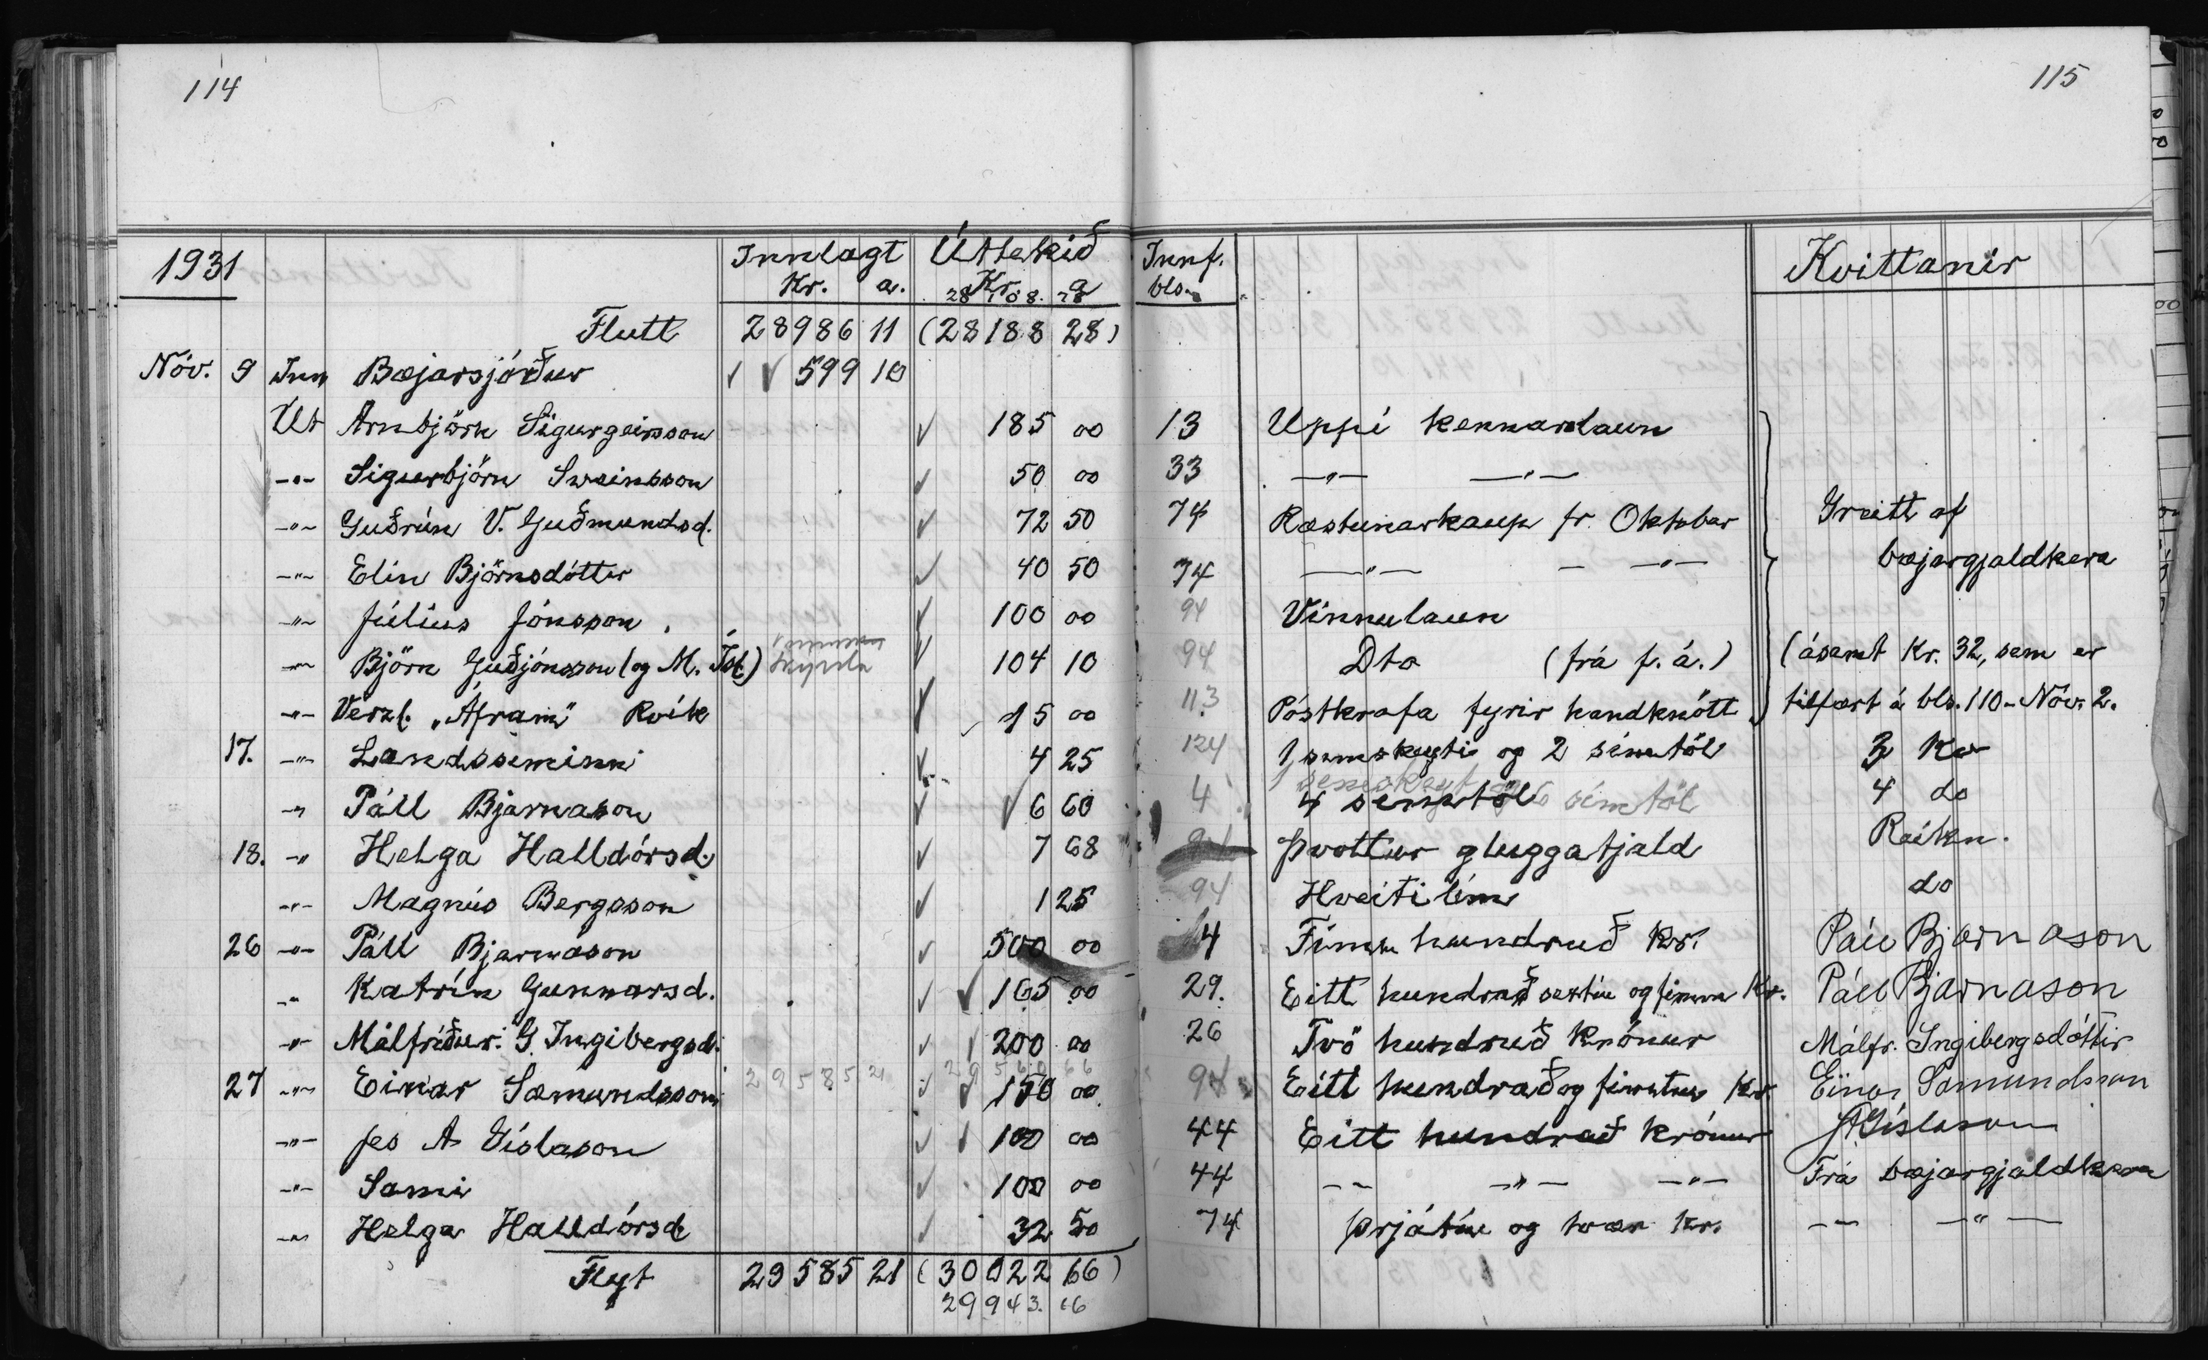 114
115
1931 Innlagt Úttekið Innf. Kvittanir
Kr. a. Kr. a bls.
28108. 78
Flutt 28986 11 (28188 28)
Nóv. 9 Inn Bæjarsjóður 599 10
Út Arnbjörn Sigurgeirsson 185 00 13 Uppí kennaralaun
-"- Sigurbjörn Sveinsson 50 00 33 -"- -"-
-"- Guðrún V. Guðmundsd. 72 50 74 Ræstunarkaup fr. Oktober Greitt af
-"- Elín Björnsdóttir 40 50 74 -"- - -"- bæjargjaldkera
-"- Júlíus Jónsson. 100 00 94 Vinnulaun
-"- Björn Guðjónsson (og M. Ísl.) 104 10 94 Dto (frá f. á.) (ásamt Kr. 32, sem er
-"- Verzl. „Áfram" Rvík 15 00 113 Póstkrafa fyrir handknött tilfært á bls. 110 - Nóv. 2.
17. -"- Landssíminn 4 25 124 1 símskeyti og 2 símtöl 3 Kv
1 símskeyt símtöl
-"- Páll Bjarnason 6 60 4 4 símtöl 4 do
18. -"- Helga Halldórsd. 7 68 94 Þvottur gluggatjald Reikn.
-"- Magnús Bergsson 1 25 94 Hveitilím do
26 -"- Páll Bjarnason 500 00 4 Fimm hundruð Kr. Páll Bjarnason
-"- Katrín Gunnarsd. 165 00 29. Eitt hundrað sextíu og fimm Kr. Páll Bjarnason
-"- Málfríður G. Ingibergsd. 200 00 26 Tvö hundruð krónur Málfr. Ingibergsdóttir
29585 21 29560 66
27 -"- Einar Sæmundsson 150 00 94 Eitt hundrað og fimmtíu Kr. Einar Sæmundsson
-"- Jes A Gíslason 100 00 44 Eitt hundrað krónur JAGíslason
-"- Sami 100 00 44 -- -"- -"- Frá bæjargjaldkera
-"- Helga Halldórsd 32 50 74 Þrjátíu og tvær kr. -- -"-
Flyt 29585 21 (30022 66)
29943. 16